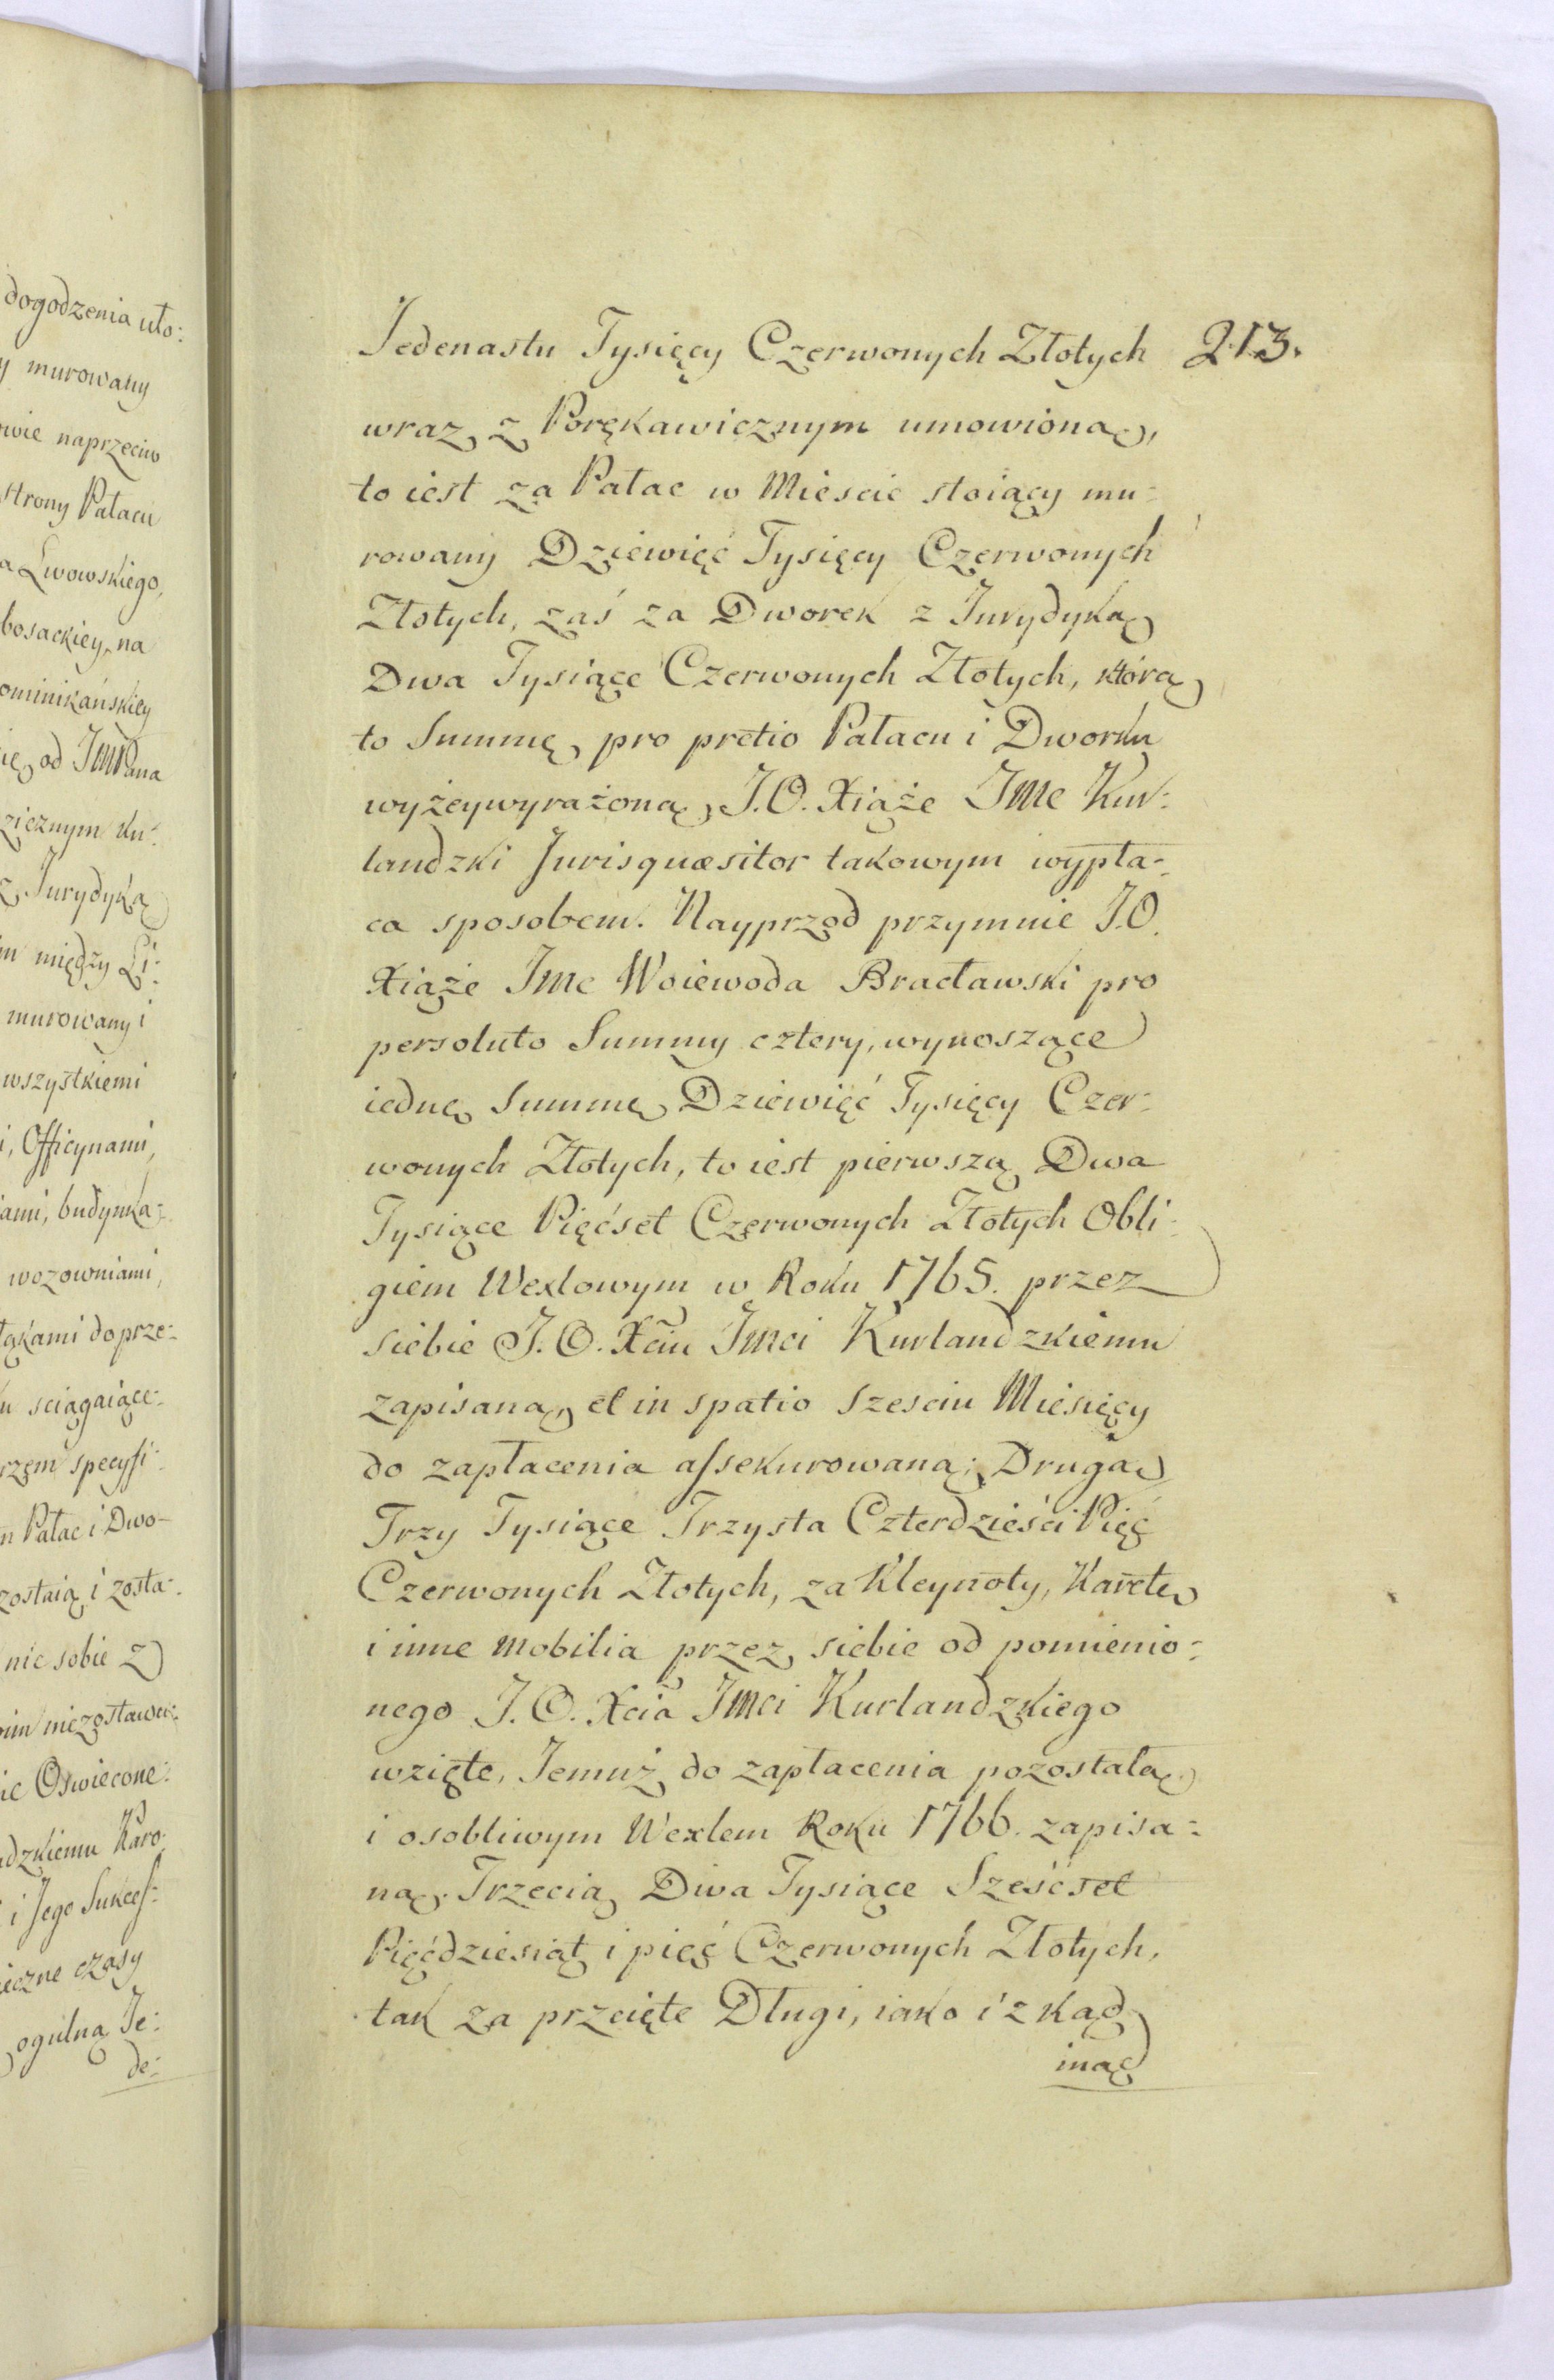 dogodzenia uło:
y murowany
owie naprzeciw
strony Pałacu
a Lwowskiego,
bosackiey, na
ominikańskiey
ię od JmPana
zicznym ku:
z Jurydyką
m między Li:
murowany i
wszystkiemi
i, Officynami,
ami, budynka:
wozowniami,
łąkami do prze:
u sciągaiące:
rzęm specyfi:
n Pałac i Dwo-
zostaią i zosta:
nic sobie z
oim niezostawu:
ie Oswiecone:
dzkiemu Karo:
i Jego Sukces:
ieczne czasy
ogulną Je:
de:
Jedenastu Tysięcy Czerwonych Złotych 213.
wraz z Porękawicznym umowioną,
to iest za Pałac w Miescie stoiący mu:
rowany Dziewięć Tysięcy Czerwonych
Złotych, zaś za Dworek z Jurydyką
Dwa Tysiące Czerwonych Złotych, którą
to Summę, pro pretio Pałacu i Dworku
wyżeywyrażoną, J.O. Xiąże Jmc Kur:
landzki Jurisquæsitor takowym wypła:
ca sposobem. Nayprzod przymuie J.O.
Xiąże Jmc Woiewoda Bracławski pro
persoluto Summy cztery, wynoszące
iednę Summę Dziewięć Tysięcy Czer:
wonych Złotych, to iest pierwszą Dwa
Tysiące Pięćset Czerwonych Złotych Obli:
giem Wexlowym w Roku 1765. przez
siebie J.O. Xciu Jmci Kurlandzkiemu
zapisaną, et in spatio szesciu Miesięcy
do zapłacenia assekurowaną; Drugą
Trzy Tysiące Trzysta Czterdzieści Pięć
Czerwonych Złotych, za Kleynoty, Karetę
i inne mobilia przez siebie od pomienio:
nego J.O. Xcia Jmci Kurlandzkiego
wzięte, Jemuż do zapłacenia pozostałą
i osobliwym Wexlem Roku 1766. zapisa:
ną. Trzecią Dwa Tysiące Sześćset
Pięćdziesiąt i pięć Czerwonych Złotych,
tak za przeięte Długi, iako i z kąd
inąd